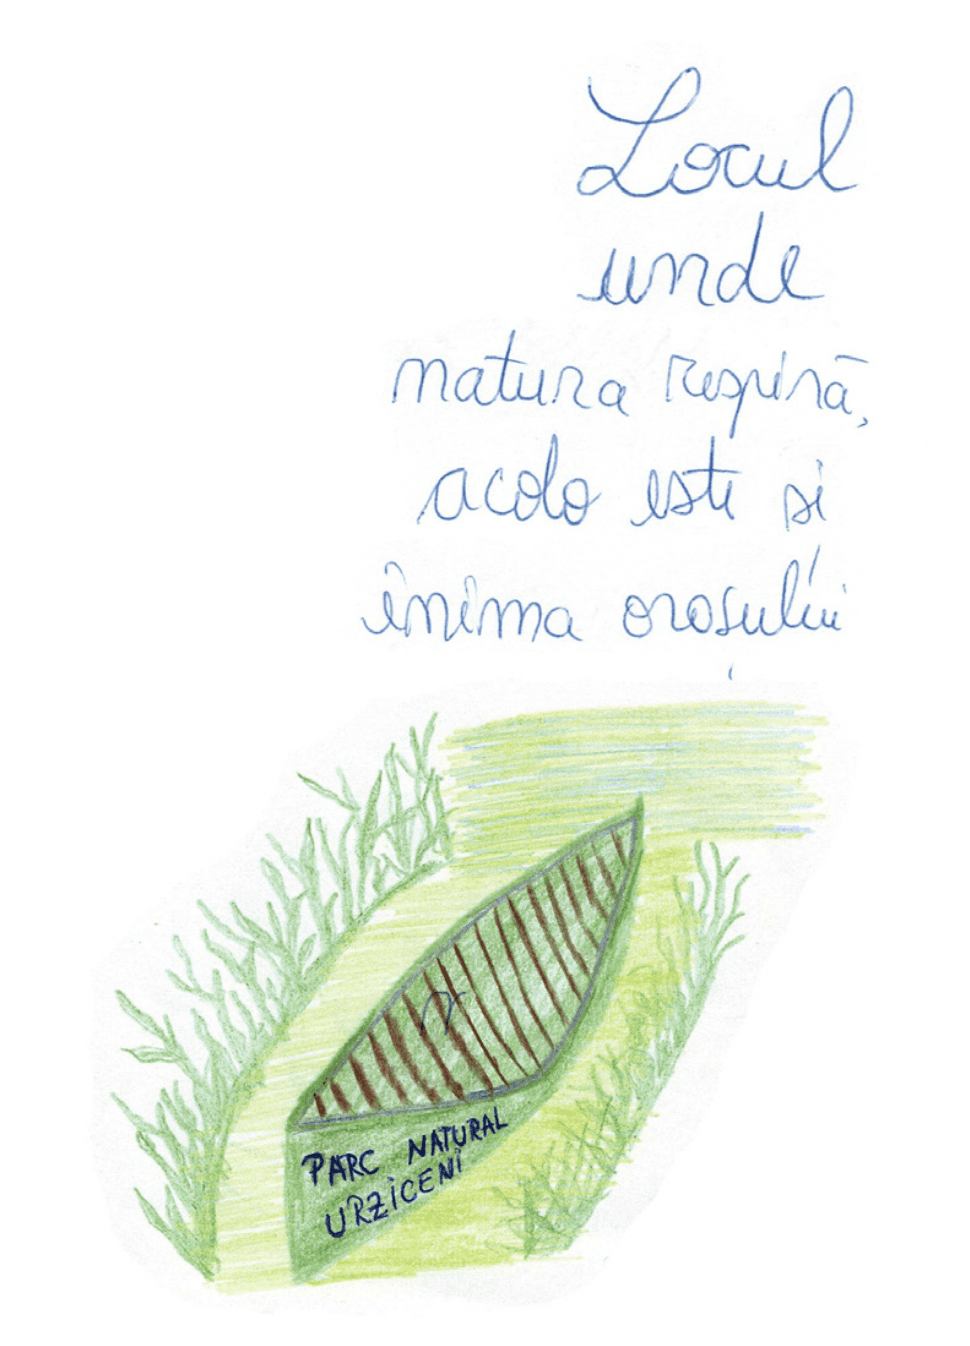 Locul
unde
natura respiră,
acolo este si
inima orosului
PARC NATURAL
URZICENI